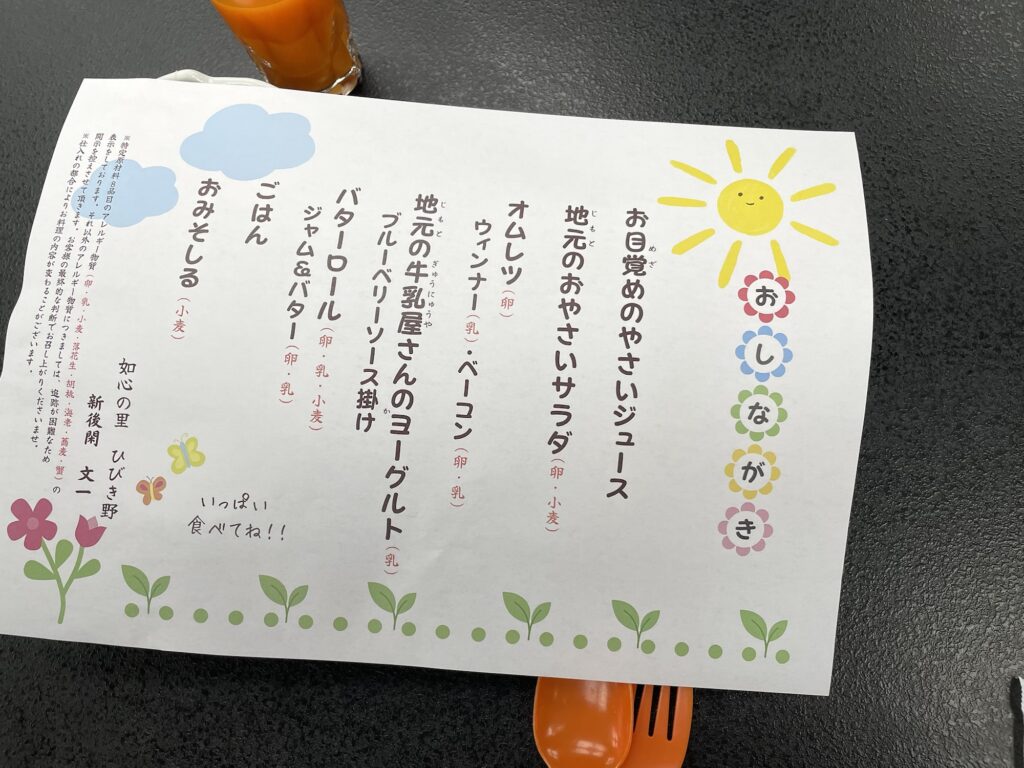 おしながき
お目覚めのやさいジュース
地元のおやさいサラダ(卵・小麦)
オムレツ(卵)
ウィンナー(乳)・ベーコン(卵・乳)
地元の牛乳屋さんのヨーグルト(乳)
ブルーベリーソース掛け
バターロール(卵・乳・小麦)
ジャム&バター(卵・乳)
ごはん
おみそしる(小麦)
いっぱい
食べてね!!
如心の里 ひびき野
新後閑 文一
※特定原材料8品目のアレルギー物質(卵・乳・小麦・落花生・胡桃・海老・蕎麦・蟹)の
表示をしております。それ以外のアレルギー物質につきましては、追跡が困難なため
開示を控えさせて頂きます。お客様の最終的な判断でお召し上がりくださいませ。
※仕入れの都合によりお料理の内容が変わることがございます。